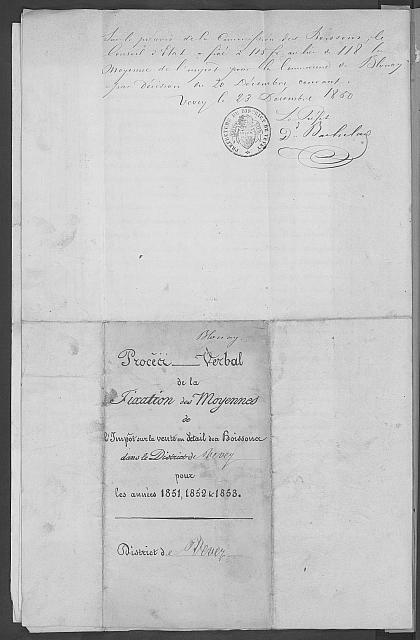 Sur le préavis de la Commission des Boissons, le
Conseil d'Etat a fixé à 115 fr. au lieu de 118 la
Moyenne de l'impôt pour la Commune de Blonay
par décision du 20 Décembre courant.
Vevey le 23 Décembre 1850
Le Préfet
PRÉFECTURE DU DISTRICT DE VEVEY
Blonay
Procès-Verbal
de la
Fixation des Moyennes
de
l'Impôt sur la vente en détail des Boissons
dans le District de Vevey
pour
les années 1851, 1852 & 1853.
District de Vevey